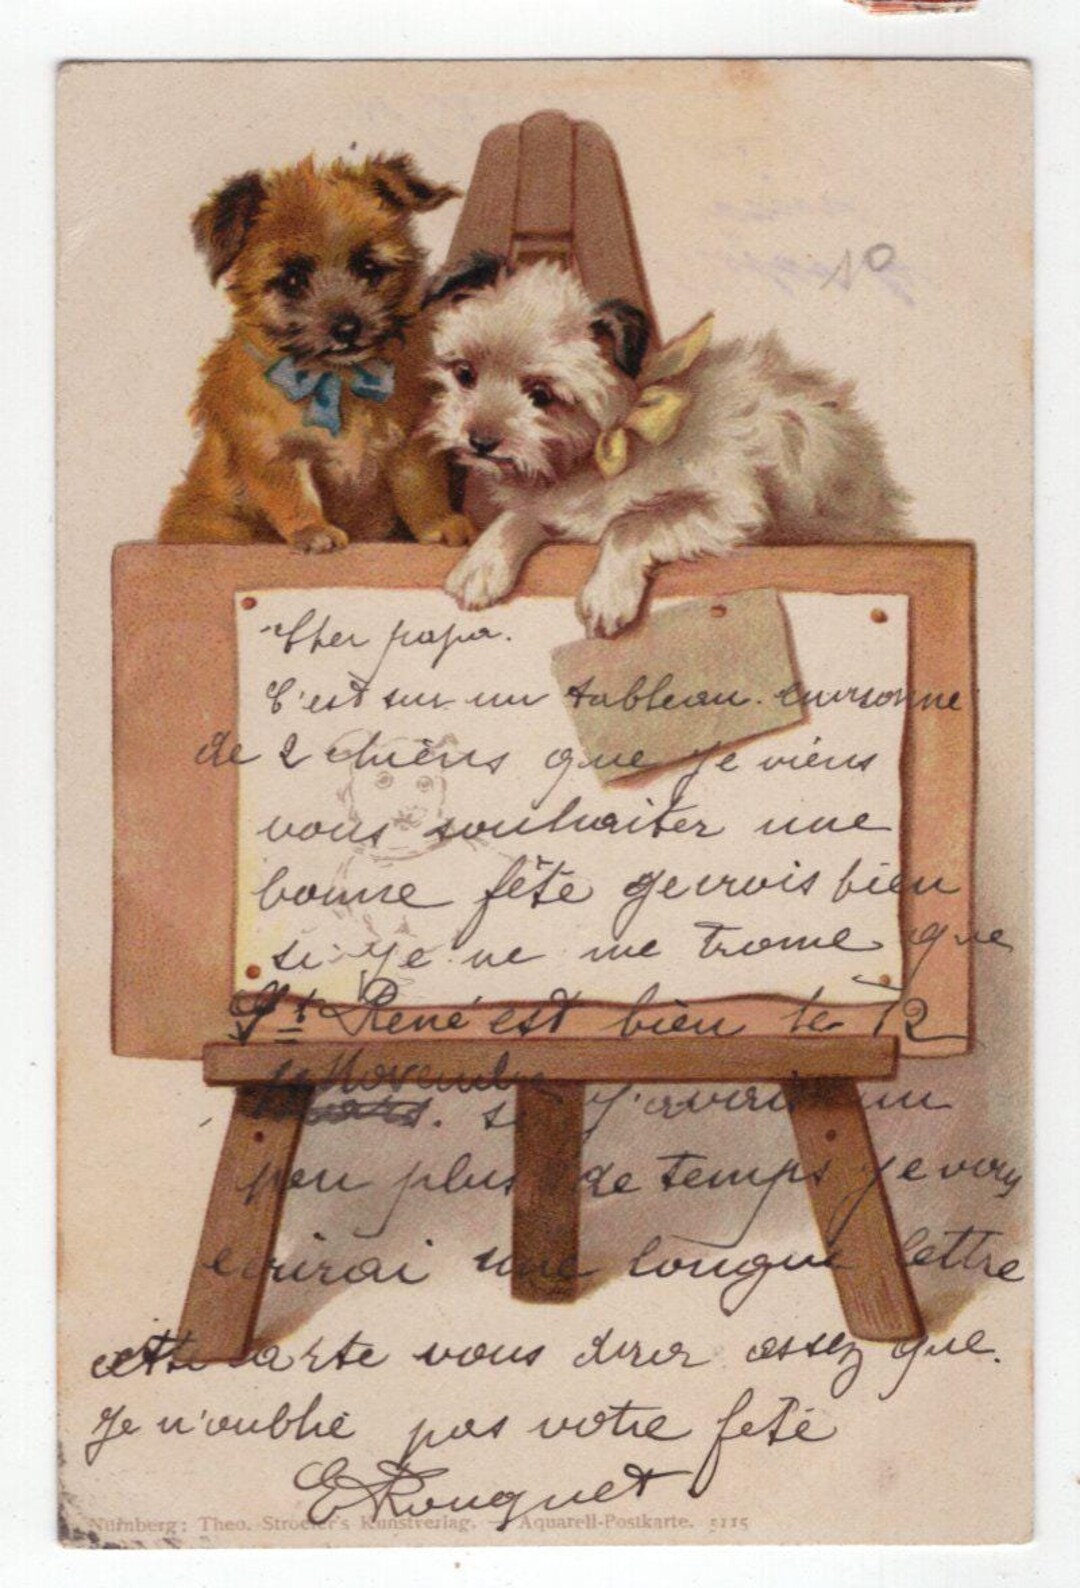 Cher papa.
C'est sur un tableau environné
de 2 chiens que je viens
vous souhaiter une
bonne fête je crois bien
si je ne me trome que
St René est bien le 12
Novembre
si j'avais un
peu plus de temps je vous
écrirai une longue lettre
cette carte vous dira assez que.
Je n'oublie pas votre fête
E Rouquet.
Nürnberg: Theo. Stroefer's Kunstverlag. — Aquarell-Postkarte. 5115